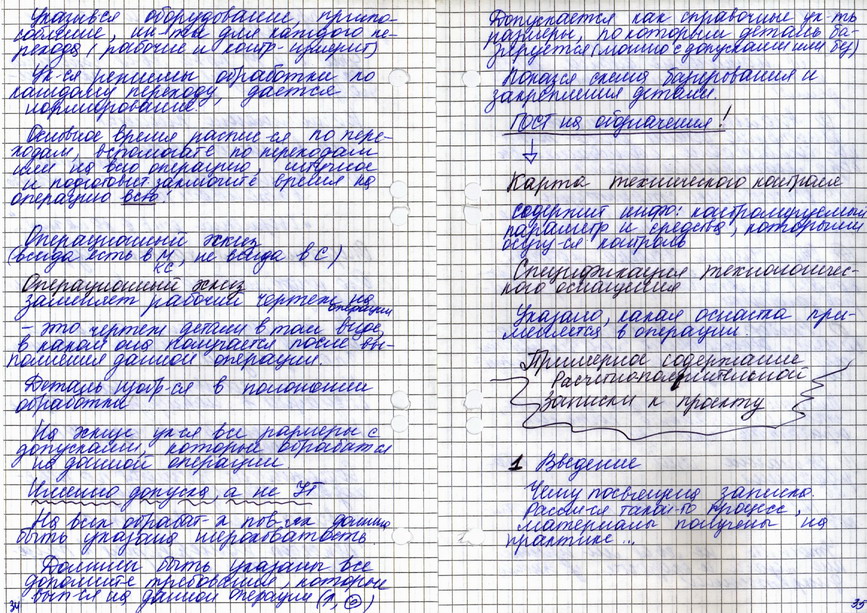 Указывся оборудование, приспо-
собление, ин-ты для каждого пе-
рехода (рабочие и контр-измерит)
Ук-ся режимы обработки по
каждому переходу, дается
нормирование.
Основное время распис-ся по пере-
ходам, вспомогате по переходам
или на всю операцию, штучное
и подготовит заключите время на
операцию всю.
Операционный эскиз
(всегда есть в М, не всегда в С)
КС
Операционный эскиз
заменяет рабочий чертеж на
операции
– это чертеж детали в том виде,
в каком она получается после вы-
полнения данной операции.
Деталь изобр-ся в положении
обработки
На эскизе ук-ся все размеры с
допусками, которые обрабатся
на данной операции
Именно допуска, а не JT
На всех обрабат-х пов-тях должна
быть указана шероховатость
Должны быть указаны все
дополните требования, которые
вып-ся на данной операции
34
Допускается как справочные ук-ть
размеры, по которым деталь ба-
зируется (можно с допусками или бу)
Показся схема базирования и
закрепления детали.
ГОСТ на обозначения!
Карта технического контроля
содержит инфо: контролируемый
параметр и средства, которыми
осущу-ся контроль
Спецификация технологичес-
кого оснащения
Указано, какая оснастка при-
меняется в операции.
Примерное содержание
Расчетнопояснительной
записки к проекту
1 Введение
Чему посвящена записка.
Рассм-ся такой-то процесс,
материалы получены на
практике...
35